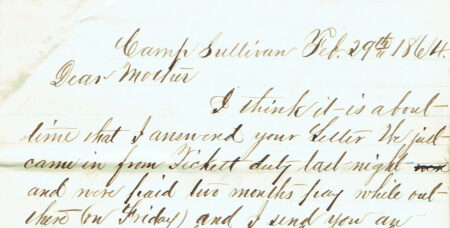 Camp Sullivan Feb. 29th 1864.
Dear Mother
I think it is about
time that I answered your Letter We just
came in from Pickett duty last night
and were paid two months pay while out
there (on Friday) and I send you an